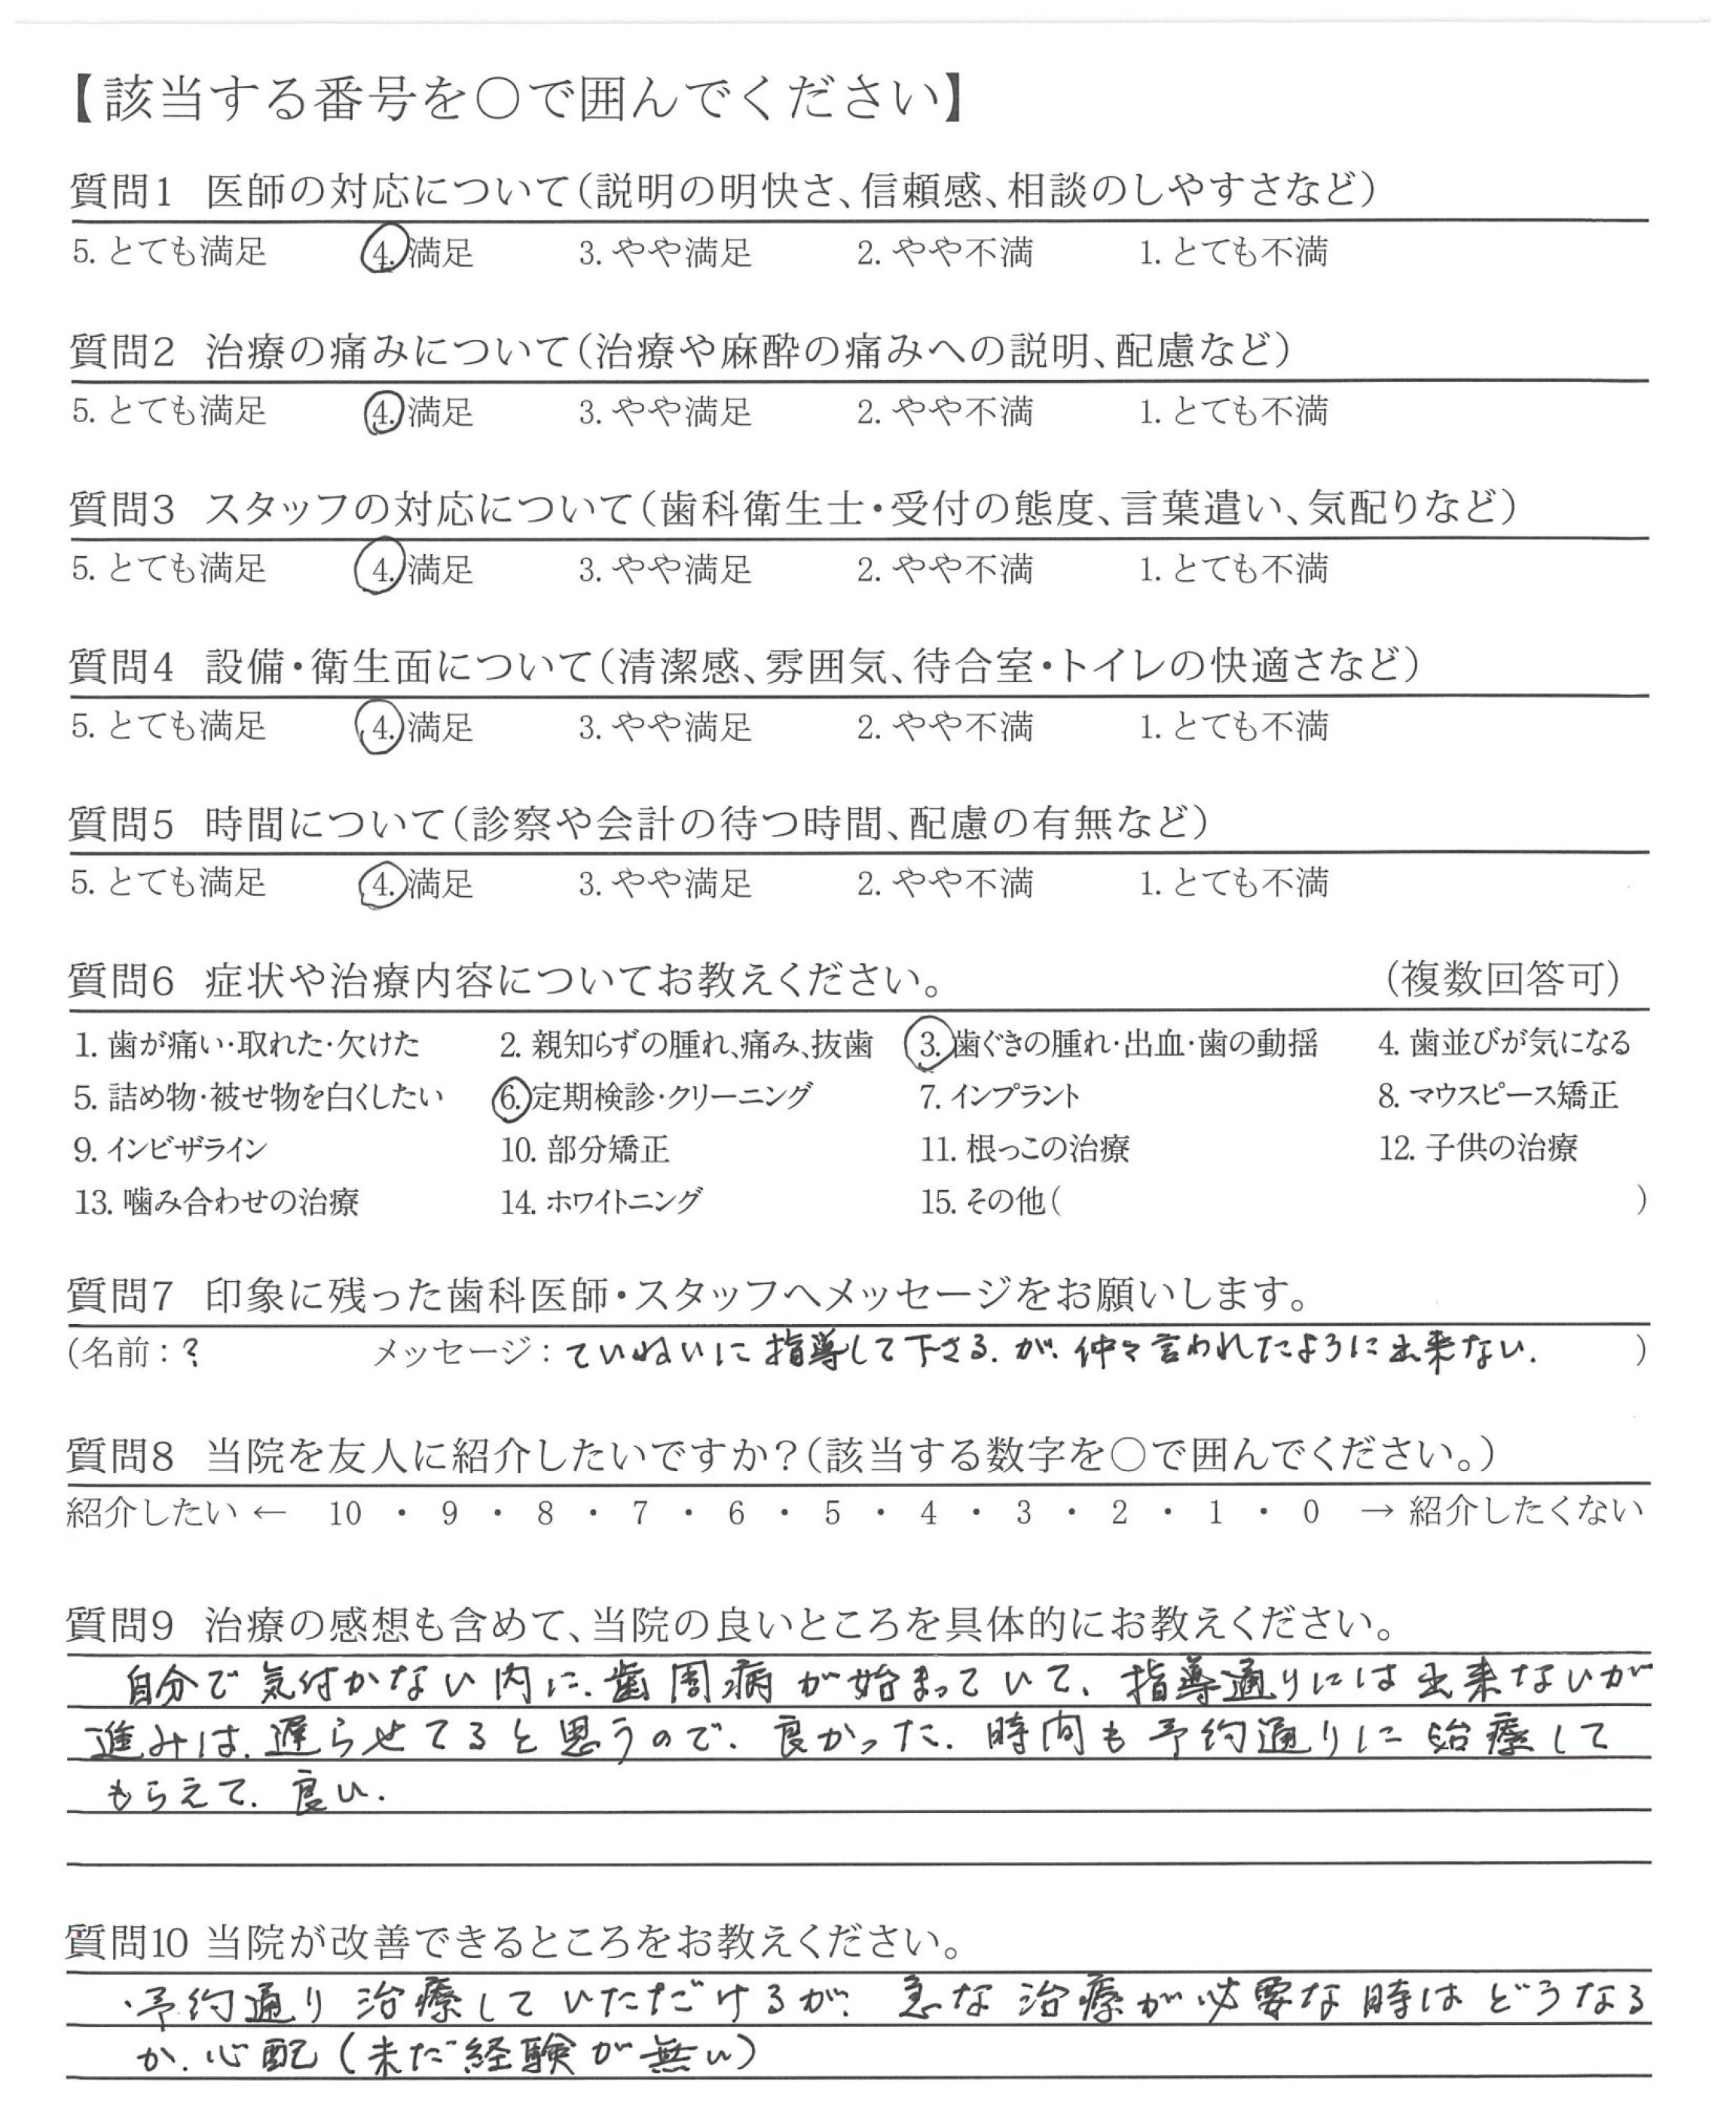 【該当する番号を○で囲んでください】
質問1 医師の対応について（説明の明快さ、信頼感、相談のしやすさなど）
5. とても満足 4. 満足 3. やや満足 2. やや不満 1. とても不満
質問2 治療の痛みについて（治療や麻酔の痛みへの説明、配慮など）
5. とても満足 4. 満足 3. やや満足 2. やや不満 1. とても不満
質問3 スタッフの対応について（歯科衛生士・受付の態度、言葉遣い、気配りなど）
5. とても満足 4. 満足 3. やや満足 2. やや不満 1. とても不満
質問4 設備・衛生面について（清潔感、雰囲気、待合室・トイレの快適さなど）
5. とても満足 4. 満足 3. やや満足 2. やや不満 1. とても不満
質問5 時間について（診察や会計の待つ時間、配慮の有無など）
5. とても満足 4. 満足 3. やや満足 2. やや不満 1. とても不満
質問6 症状や治療内容についてお教えください。 （複数回答可）
1. 歯が痛い・取れた・欠けた 2. 親知らずの腫れ、痛み、抜歯 3. 歯ぐきの腫れ・出血・歯の動揺 4. 歯並びが気になる
5. 詰め物・被せ物を白くしたい 6. 定期検診・クリーニング 7. インプラント 8. マウスピース矯正
9. インビザライン 10. 部分矯正 11. 根っこの治療 12. 子供の治療
13. 噛み合わせの治療 14. ホワイトニング 15. その他（ ）
質問7 印象に残った歯科医師・スタッフへメッセージをお願いします。
（名前：？ メッセージ：ていねいに指導して下さる.が、仲々言われたように出来ない. ）
質問8 当院を友人に紹介したいですか？（該当する数字を○で囲んでください。）
紹介したい ← 10 ・ 9 ・ 8 ・ 7 ・ 6 ・ 5 ・ 4 ・ 3 ・ 2 ・ 1 ・ 0 → 紹介したくない
質問9 治療の感想も含めて、当院の良いところを具体的にお教えください。
自分で気付かない内に、歯周病が始まっていて、指導通りには出来ないが
進みは、遅らせてると思うので、良かった. 時間も予約通りに治療して
もらえて、良い.
質問10 当院が改善できるところをお教えください。
・予約通り治療していただけるが、急な治療が必要な時はどうなる
か、心配（未だ経験が無い）